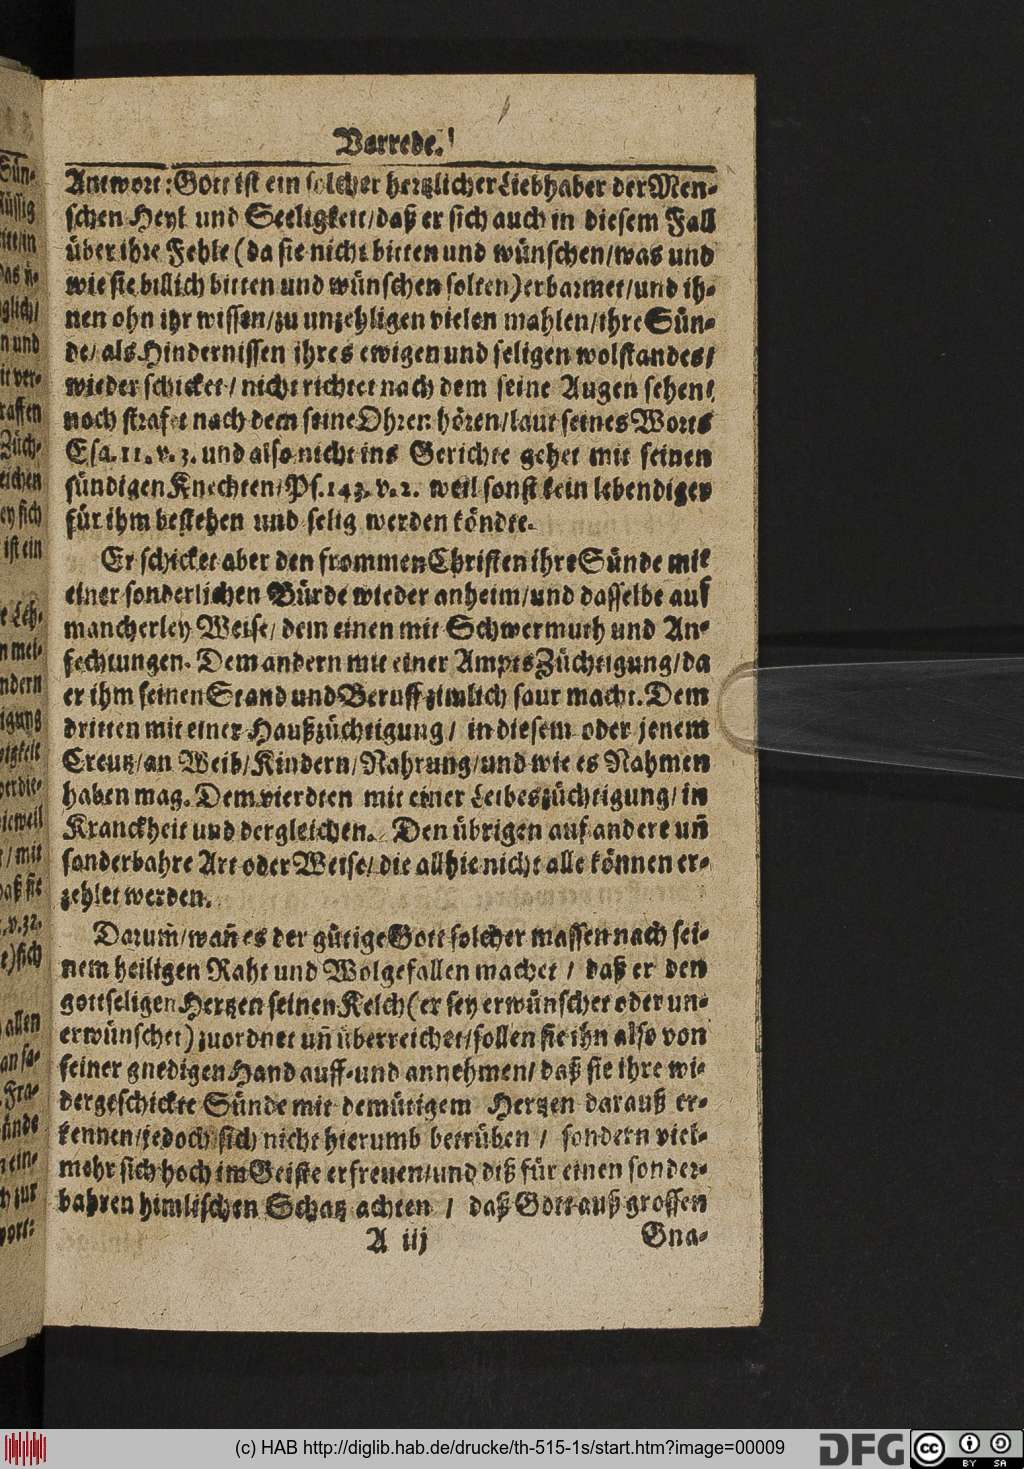 Vorrede.
Antwort: Gott ist ein solcher hertzlicher Liebhaber der Men-
schen Heyl und Seeligkeit/ daß er sich auch in diesem Fall
über ihre Fehle (da sie nicht bitten und wünschen/ was und
wie sie billich bitten und wünschen solten) erbarmet/ und ih-
nen ohn ihr wissen/ zu unzehligen vielen mahlen/ ihre Sün-
de/ als Hindernissen ihres ewigen und seligen wolstandes/
wieder schicket/ nicht richtet nach dem seine Augen sehen/
noch strafet nach dem seine Ohren hören/ laut seines Worts
Esa. 11. v. 3. und also nicht ins Gerichte gehet mit seinen
sündigen Knechten/ Ps. 143. v. 2. weil sonst kein lebendiger
für ihm bestehen und selig werden köndte.
Er schicket aber den frommen Christen ihre Sünde mit
einer sonderlichen Bürde wieder anheim/ und dasselbe auf
mancherley Weise/ dem einen mit Schwermuth und An-
fechtungen. Dem andern mit einer Ampts Züchtigung/ da
er ihm seinen Stand und Beruff zimlich saur macht. Dem
dritten mit einer Haußzüchtigung/ in diesem oder jenem
Creutz/ an Weib/ Kindern/ Nahrung/ und wie es Nahmen
haben mag. Dem vierdten mit einer Leibeszüchtigung/ in
Kranckheit und dergleichen. Den übrigen auf andere uñ
sonderbahre Art oder Weise/ die allhie nicht alle können er-
zehlet werden.
Darum̃/ wañ es der gütige Gott solcher massen nach sei-
nem heiligen Raht und Wolgefallen machet / daß er den
gottseligen Hertzen seinen Kelch (er sey erwünschet oder un-
erwünschet) zuordnet uñ überreichet/ sollen sie ihn also von
seiner gnedigen Hand auff- und annehmen/ daß sie ihre wi-
dergeschickte Sünde mit demütigem Hertzen darauß er-
kennen/ jedoch sich nicht hierumb betrüben / sondern viel-
mehr sich hoch im Geiste erfreuen/ und diß für einen sonder-
bahren himlischen Schatz achten / daß Gott auß grossen
A iij Gna-
(c) HAB http://diglib.hab.de/drucke/th-515-1s/start.htm?image=00009
DFG
cc BY SA